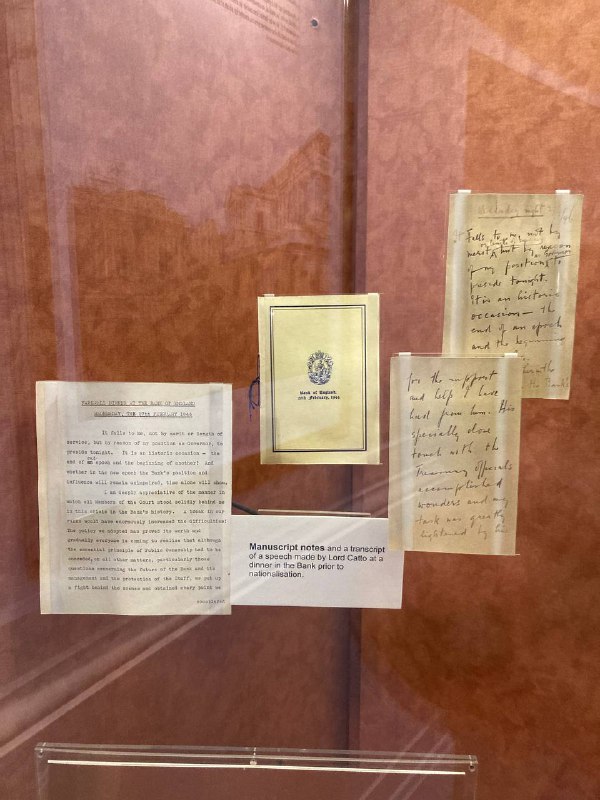 FAREWELL DINNER AT THE BANK OF ENGLAND
WEDNESDAY, THE 27th FEBRUARY 1946
It falls to me, not by merit or length of
service, but by reason of my position as Governor, to
preside tonight. It is an historic occasion - the
end of an epoch and the beginning of another! And
whether in the new epoch the Bank's position and
influence will remain unimpaired, time alone will show.
I am deeply appreciative of the manner in
which all Members of the Court stood solidly behind me
in this crisis in the Bank's history. A break in our
ranks would have enormously increased the difficulties!
The policy we adopted has proved its worth and
gradually everyone is coming to realise that although
the essential principle of Public Ownership had to be
conceded, on all other matters, particularly those
questions concerning the future of the Bank and its
management and the protection of the Staff, we put up
a fight behind the scenes and obtained every point we
considered
Bank of England,
27th February, 1946
Manuscript notes and a transcript
of a speech made by Lord Catto at a
dinner in the Bank prior to
nationalisation.
Falls to me, not by
merit but by reason
of my position to
preside tonight.
It is an historic
occasion - the
end of an epoch
and the beginning
the Bank's
for the support
and help I have
had from him. His
specially close
touch with the
Treasury officials
accomplished
wonders and my
task was greatly
lightened by his